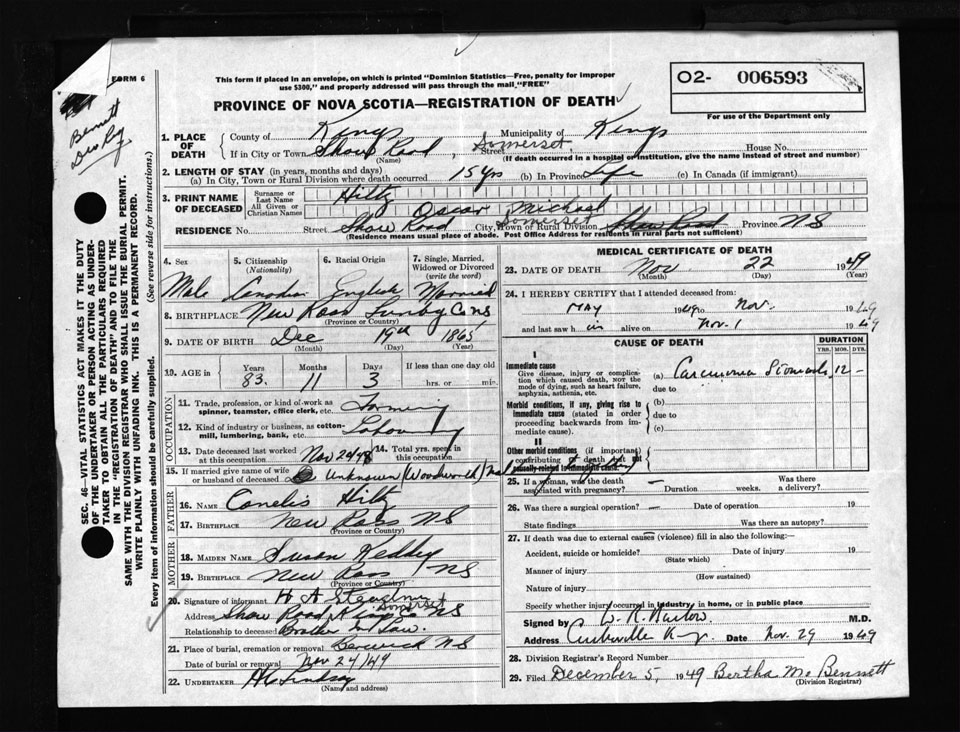 FORM 6
This form if placed in an envelope, on which is printed "Dominion Statistics—Free, penalty for improper
use $300," and properly addressed will pass through the mail "FREE"
O2- 006593
For use of the Department only
PROVINCE OF NOVA SCOTIA—REGISTRATION OF DEATH
Bennett
Dev Reg
SEC. 46—VITAL STATISTICS ACT MAKES IT THE DUTY
OF THE UNDERTAKER OR PERSON ACTING AS UNDER-
TAKER TO OBTAIN ALL THE PARTICULARS REQUIRED
IN THE "REGISTRATION OF DEATH" AND TO FILE THE
SAME WITH THE DIVISION REGISTRAR WHO SHALL ISSUE THE BURIAL PERMIT.
WRITE PLAINLY WITH UNFADING INK. THIS IS A PERMANENT RECORD.
Every item of information should be carefully supplied. (See reverse side for instructions.)
1. PLACE OF DEATH
County of Kings Municipality of Kings
If in City or Town Show Road, Street Somerset House No.
(Name) (If death occurred in a hospital or institution, give the name instead of street and number)
2. LENGTH OF STAY (in years, months and days)
(a) In City, Town or Rural Division where death occurred 15 yrs (b) In Province Life (c) In Canada (if immigrant)
3. PRINT NAME OF DECEASED
Surname or Last Name Hiltz
All Given or Christian Names Oscar Michael
RESIDENCE No. Street Show Road City, Town or Rural Division Somerset Show Road Province NS
(Residence means usual place of abode. Post Office Address for residents in rural parts not sufficient)
4. Sex 5. Citizenship (Nationality) 6. Racial Origin 7. Single, Married, Widowed or Divorced (write the word)
Male Canadian English Married
8. BIRTHPLACE New Ross Lunby Co NS
(Province or Country)
9. DATE OF BIRTH Dec 19th 1865
(Month) (Day) (Year)
10. AGE in Years Months Days If less than one day
83 11 3 hrs. or min.
OCCUPATION
11. Trade, profession, or kind of work as
spinner, teamster, office clerk, etc. Farming
12. Kind of industry or business, as cotton-
mill, lumbering, bank, etc. Labouring
13. Date deceased last worked at this occupation Nov 24/48 14. Total yrs. spent in this occupation
15. If married give name of wife
or husband of deceased Unknown Woodworth
FATHER
16. NAME Cornelis Hiltz
17. BIRTHPLACE New Ross NS
(Province or Country)
MOTHER
18. MAIDEN NAME Susan Keddy
19. BIRTHPLACE New Ross NS
(Province or Country)
20. Signature of informant H A
Address Show Road Somerset Kings NS
Relationship to deceased Brother in Law.
21. Place of burial, cremation or removal Berwick NS
Date of burial or removal Nov 24/49
22. UNDERTAKER Lindsay
(Name and address)
MEDICAL CERTIFICATE OF DEATH
23. DATE OF DEATH Nov 22 1949
(Month) (Day) (Year)
24. I HEREBY CERTIFY that I attended deceased from:
May 1949 to Nov. 1949
and last saw him alive on Nov. 1 1949
CAUSE OF DEATH DURATION
YRS. MOS. DYS.
I
Immediate cause
Give disease, injury or compli-
cation which caused death, not the
mode of dying, such as heart failure,
asphyxia, asthenia, etc.
(a) Carcinoma Stomach 12 –
due to
Morbid conditions, if any, giving rise to
immediate cause (stated in order
proceeding backwards from im-
mediate cause).
(b)
due to
(c)
II
Other morbid conditions (if important)
contributing to death but not
causally related to immediate cause.
25. If a woman, was the death
associated with pregnancy? – Duration weeks. Was there a delivery?
26. Was there a surgical operation? – Date of operation 19
State findings Was there an autopsy?
27. If death was due to external causes (violence) fill in also the following:—
Accident, suicide or homicide? Date of injury 19
(State which)
Manner of injury
(How sustained)
Nature of injury
Specify whether injury occurred in industry, in home, or in public place
Signed by M.D.
Address Date Nov. 29 1949
28. Division Registrar's Record Number
29. Filed December 5, 1949 Bertha M. Bennett
(Division Registrar)